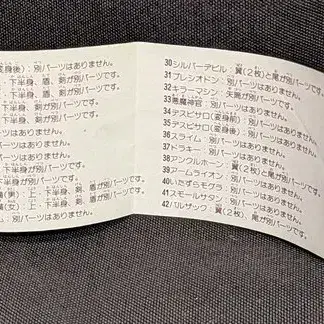 変身後）：別パーツはありません。
：下半身、盾、剣が別パーツです。
：別パーツはありません。
：下半身、剣が別パーツです。
：下半身、盾、剣が別パーツです。
：下半身、剣が別パーツです。
別パーツはありません。
別パーツはありません。
（男）：上・下半身、剣、盾が別パーツです。
（女）：上・下半身、剣、盾が別パーツです。
ム：別パーツはありません。
30 シルバーデビル：翼（2枚）と尾が別パーツです。
31 プレシオドン：別パーツはありません。
32 キラーマシン：矢尾が別パーツです。
33 悪魔神官：別パーツはありません。
34 デスピサロ（変身前）：別パーツはありません。
35 デスピサロ（変身後）：別パーツはありません。
36 スライム：別パーツはありません。
37 ドラキー：別パーツはありません。
38 アンクルホーン：翼（2枚）と尾が別パーツです。
39 アームライオン：別パーツはありません。
40 いたずらモグラ：別パーツはありません。
41 スモールサタン：別パーツはありません。
42 バルザック：翼（2枚）、尾が別パーツです。